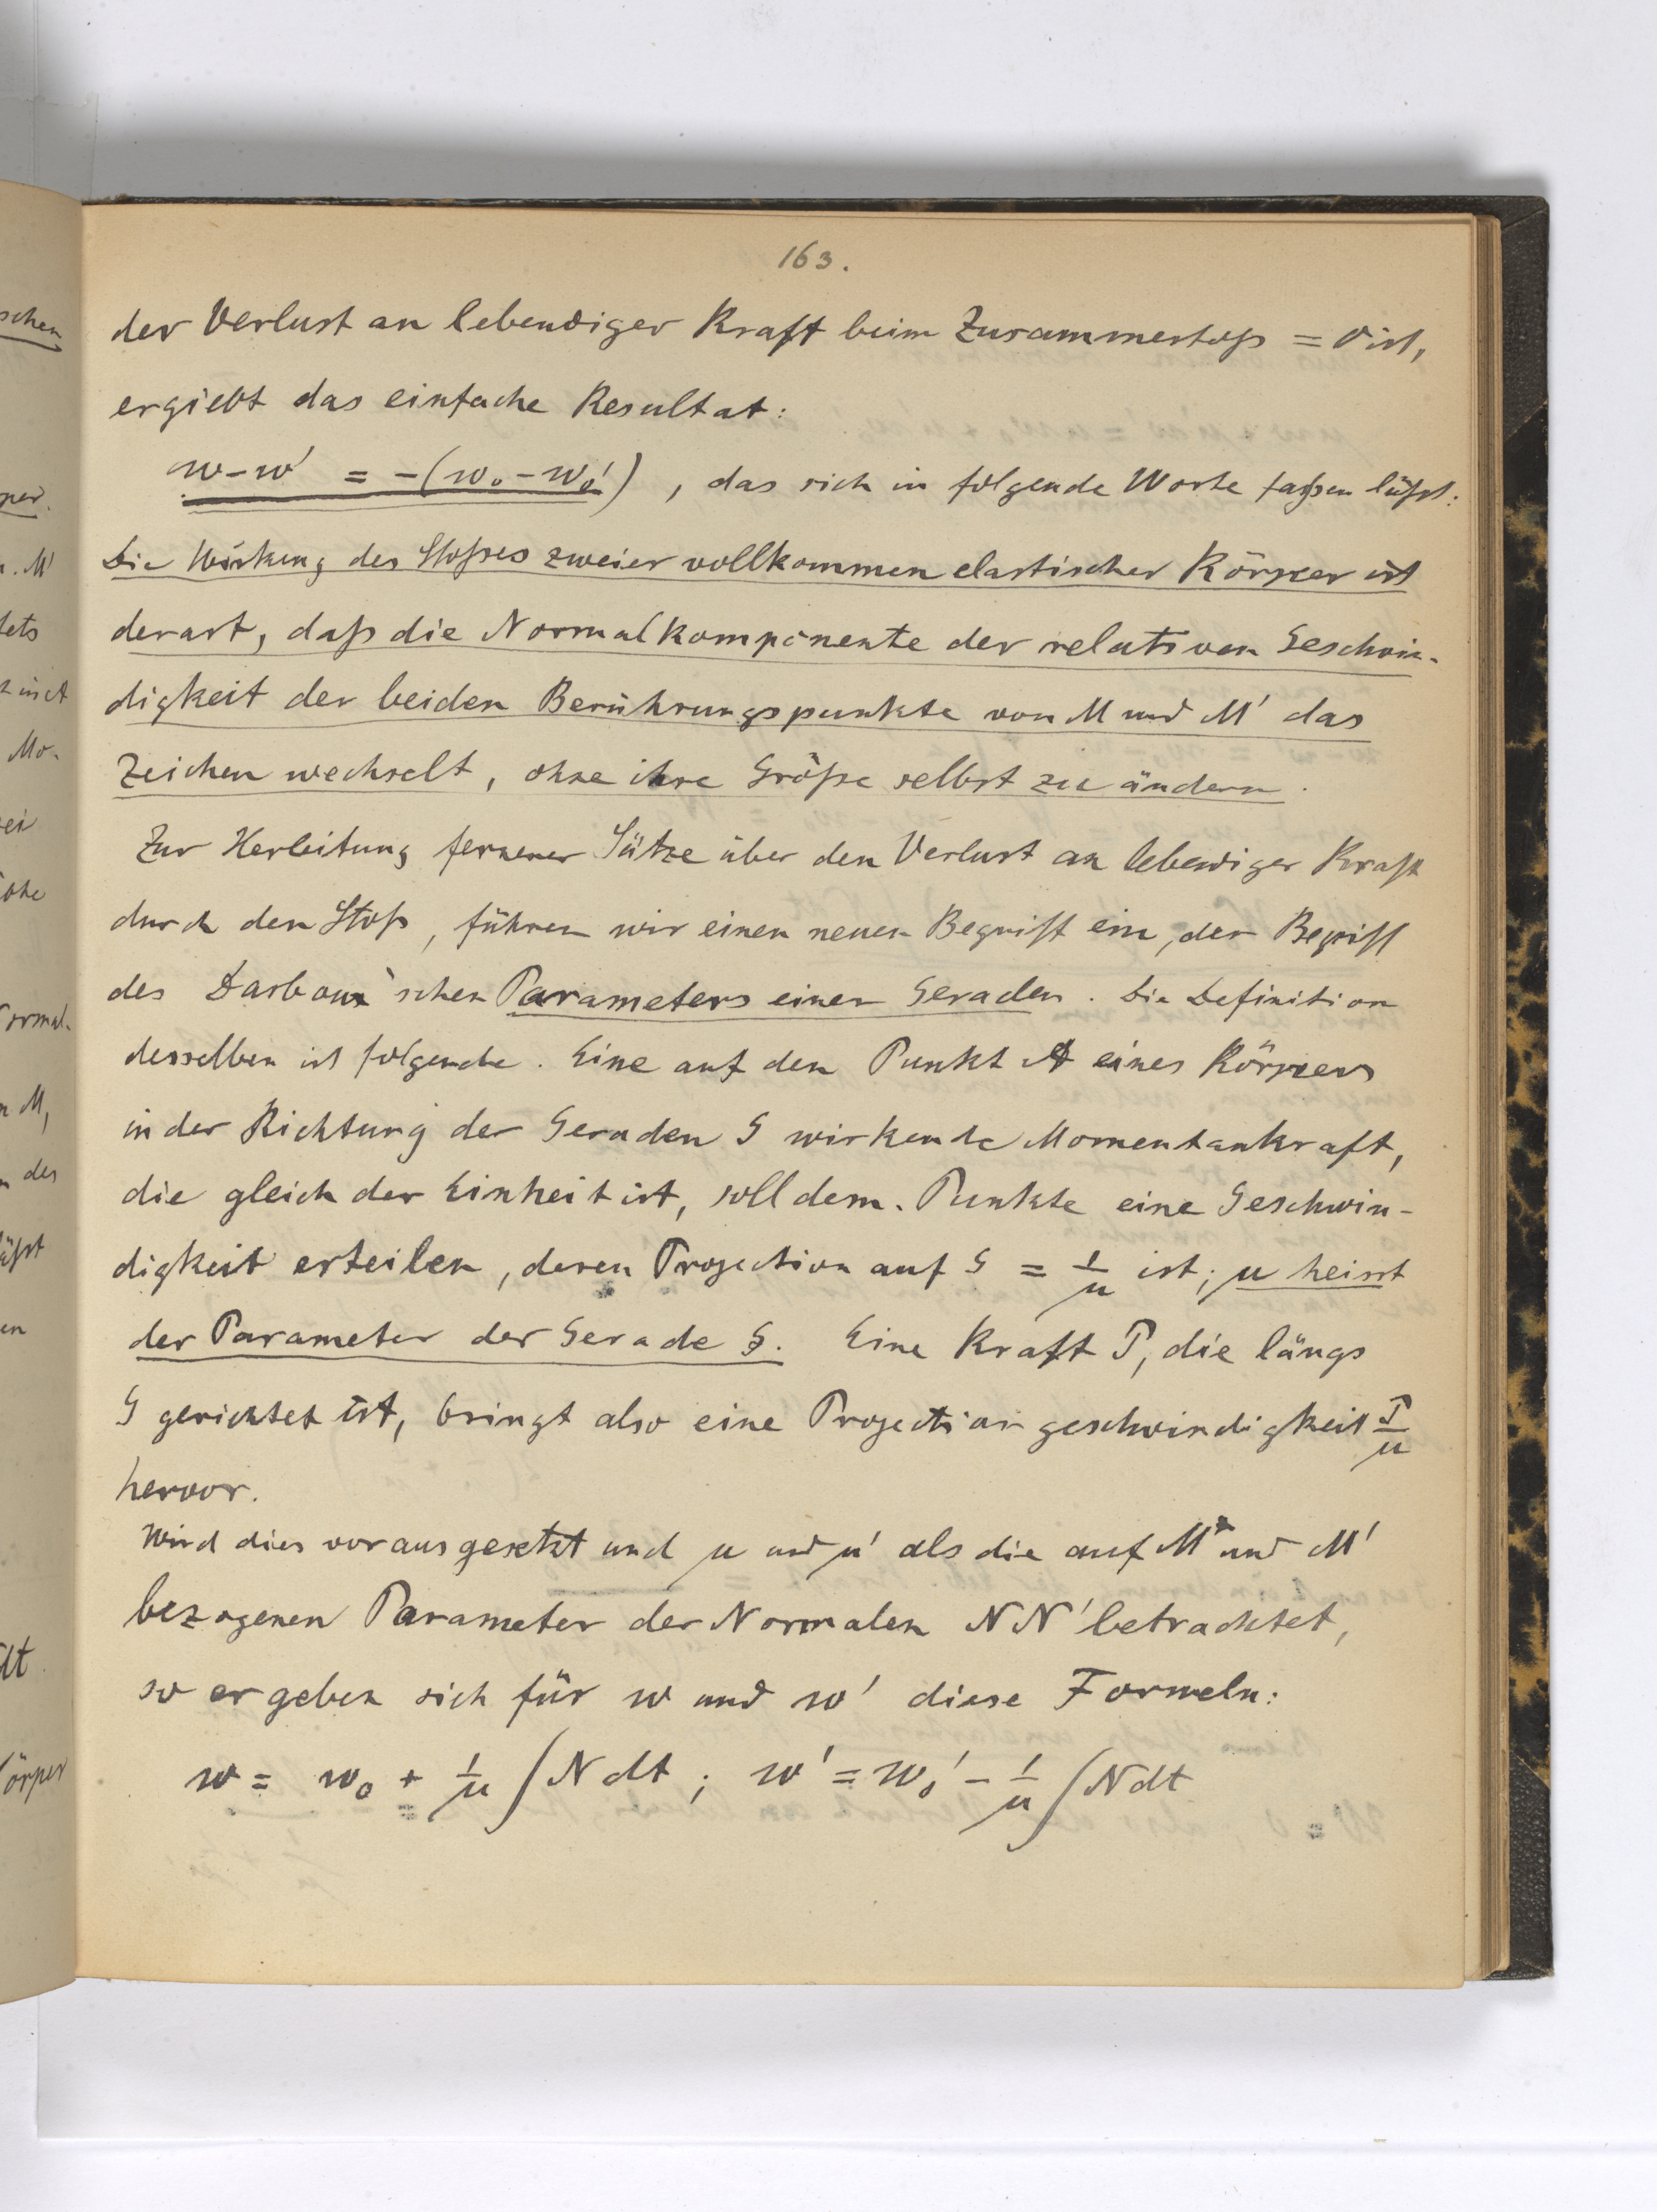 163.
der Verlust an lebendiger Kraft beim Zusammenstoß = 0 ist,
ergiebt das einfache Resultat:
w-w' = -(w₀-w₀'), das sich in folgende Worte faßen läßt:
Die Wirkung des Stoßes zweier vollkommen elastischer Körper ist
derart, daß die Normalkomponente der relativen Geschwin-
digkeit der beiden Berührungspunkte von M und M' das
Zeichen wechselt, ohne ihre Größe selbst zu ändern.
Zur Herleitung fernerer Sätze über den Verlust an lebendiger Kraft
durch den Stoß, führen wir einen neuen Begriff ein, der Begriff
des Darboux'schen Parameters einer Geraden. Die Definition
desselben ist folgende. Eine auf den Punkt A eines Körpers
in der Richtung der Geraden G wirkende Momentankraft,
die gleich der Einheit ist, soll dem. Punkte eine Geschwin-
digkeit erteilen, deren Projection auf G = 1/μ ist; μ heisst
der Parameter der Gerade G. Eine Kraft P, die längs
G gerichtet ist, bringt also eine Projection geschwindigkeit P/μ
hervor.
Wird dies vorausgesetzt und μ und μ' als die auf M und M'
bezogenen Parameter der Normalen NN' betrachtet,
so ergeben sich für w und w' diese Formeln:
w = w₀ + 1/μ ∫N dt ; w' = w₀' - 1/μ ∫N dt
schen
per.
n. M'
tets
Mo-
ei
ormal-
n M,
des
äßt
en
dt
örper